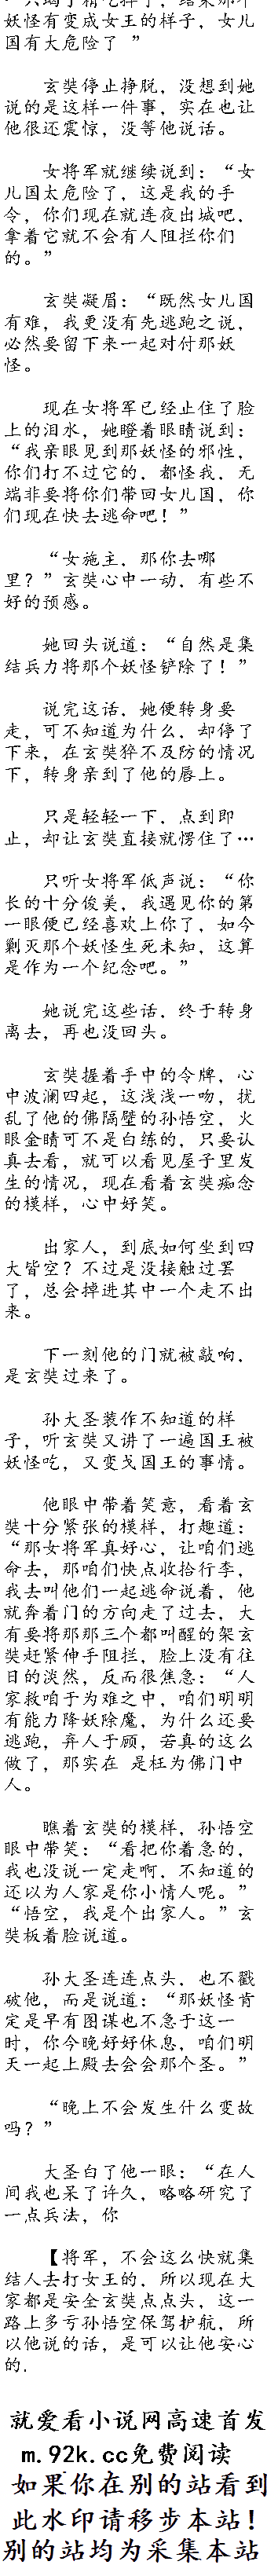 妖怪有变成女王的样子，女儿
国有大危险了 ”
玄奘停止挣脱，没想到她
说的是这样一件事，实在也让
他很还震惊，没等他说话。
女将军就继续说到：“女
儿国太危险了，这是我的手
令，你们现在就连夜出城吧，
拿着它就不会有人阻拦你们
的。”
玄奘凝眉：“既然女儿国
有难，我更没有先逃跑之说，
必然要留下来一起对付那妖
怪。
现在女将军已经止住了脸
上的泪水，她瞪着眼睛说到：
“我亲眼见到那妖怪的邪性，
你们打不过它的，都怪我，无
端非要将你们带回女儿国，你
们现在快去逃命吧！”
“女施主，那你去哪
里？”玄奘心中一动，有些不
好的预感。
她回头说道：“自然是集
结兵力将那个妖怪铲除了！”
说完这话，她便转身要
走，可不知道为什么，却停了
下来，在玄奘猝不及防的情况
下，转身亲到了他的唇上。
只是轻轻一下，点到即
止，却让玄奘直接就愣住了…
只听女将军低声说：“你
长的十分俊美，我遇见你的第
一眼便已经喜欢上你了，如今
剿灭那个妖怪生死未知，这算
是作为一个纪念吧。”
她说完这些话，终于转身
离去，再也没回头。
玄奘握着手中的令牌，心
中波澜四起，这浅浅一吻，扰
乱了他的佛隔壁的孙悟空，火
眼金睛可不是白练的，只要认
真去看，就可以看见屋子里发
生的情况，现在看着玄奘痴念
的模样，心中好笑。
出家人，到底如何坐到四
大皆空？不过是没接触过罢
了，总会掉进其中一个走不出
来。
下一刻他的门就被敲响，
是玄奘过来了。
孙大圣装作不知道的样
子，听玄奘又讲了一遍国王被
妖怪吃，又变戈国王的事情。
他眼中带着笑意，看着玄
奘十分紧张的模样，打趣道：
“那女将军真好心，让咱们逃
命去，那咱们快点收拾行李，
我去叫他们一起逃命说着，他
就奔着门的方向走了过去，大
有要将那那三个都叫醒的架玄
奘赶紧伸手阻拦，脸上没有往
日的淡然，反而很焦急：“人
家救咱于为难之中，咱们明明
有能力降妖除魔，为什么还要
逃跑，弃人于顾，若真的这么
做了，那实在 是枉为佛门中
人。
瞧着玄奘的模样，孙悟空
眼中带笑：“看把你着急的，
我也没说一定走啊，不知道的
还以为人家是你小情人呢。”
“悟空，我是个出家人。”玄
奘板着脸说道。
孙大圣连连点头，也不戳
破他，而是说道：“那妖怪肯
定是早有图谋也不急于这一
时，你今晚好好休息，咱们明
天一起上殿去会会那个圣。”
“晚上不会发生什么变故
吗？”
大圣白了他一眼：“在人
间我也呆了许久，略略研究了
一点兵法，你
【将军，不会这么快就集
结人去打女王的，所以现在大
家都是安全玄奘点点头，这一
路上多亏孙悟空保驾护航，所
以他说的话，是可以让他安心
的，
就爱看小说网高速首发
m.92k.cc免费阅读
如果你在别的站看到
此水印请移步本站！
别的站均为采集本站